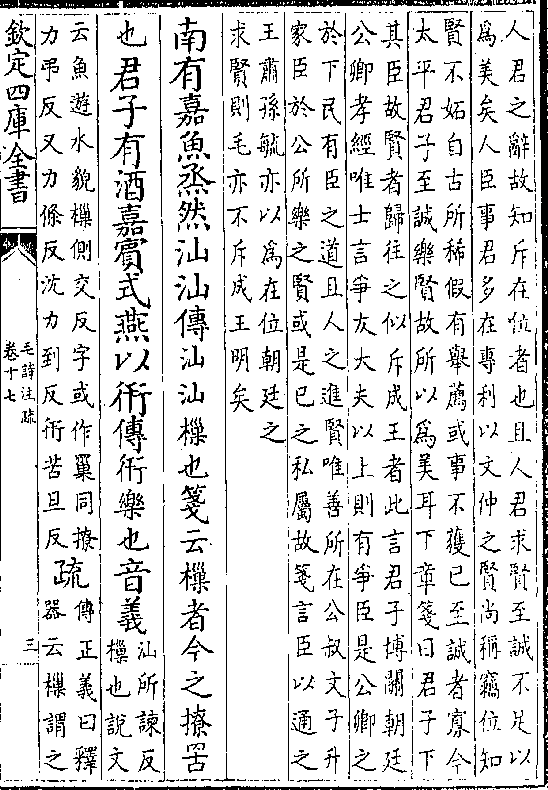 人君之辭故知斥在位者也且人君求賢至誠不足以
爲美矣人臣事君多在專利以文仲之賢尚稱竊位知
賢不妬自古所稀假有舉薦或事不獲已至誠者寡今
太平君子至誠樂賢故所以爲美耳下章箋曰君子下
其臣故賢者歸往之似斥成王者此言君子博關朝廷
公卿孝經唯士言爭友大夫以上則有爭臣是公卿之
於下民有臣之道且人之進賢唯善所在公叔文子升
家臣於公所樂之賢或是已之私屬故箋言臣以通之
王肅孫毓亦以爲在位朝廷之
求賢則毛亦不斥成王明矣
南有嘉魚烝然汕汕傳汕汕樔也箋云樔者今之撩罟
也君子有酒嘉賓式燕以衎傳衎樂也音義
汕所諫反
樔也說文
云魚遊水貌樔側交反字或作罺同撩
力弔反又力條反沈力到反衎苦旦反
疏
傳正義曰釋
器云樔謂之
欽定四庫全書
毛詩注疏
卷十七
三